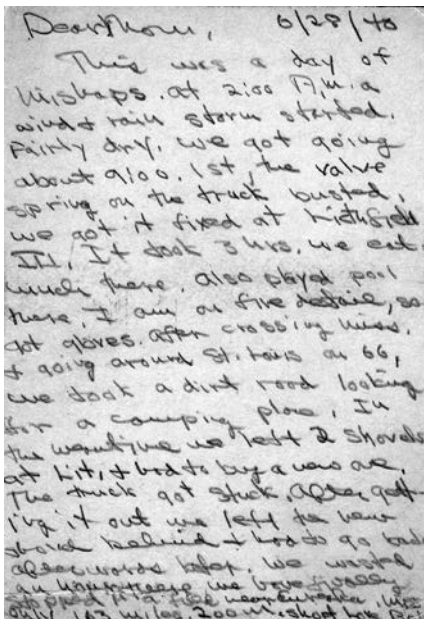 Dear Mom, 6/28/40
This was a day of
mishaps. at 2:00 A.M. a
wind & rain storm started.
Fairly dry. we got going
about 9:00. 1st, the valve
spring on the truck busted,
we got it fixed at Litchfield
Ill. It took 3 hrs. we eat
lunch there. also played pool
there. I am on fire detail, so
got gloves. after crossing miss.
& going around St. Louis on 66,
we took a dirt road looking
for a camping place. In
the meantime we left 2 shovels
at Lit, & had to buy a new one.
The truck got stuck. After gett-
ing it out we left the new
shovel behind & had to go back
afterwords for it. we wasted
an hour there. we have finally
stopped in a field near
only 163 miles, 200 m. short